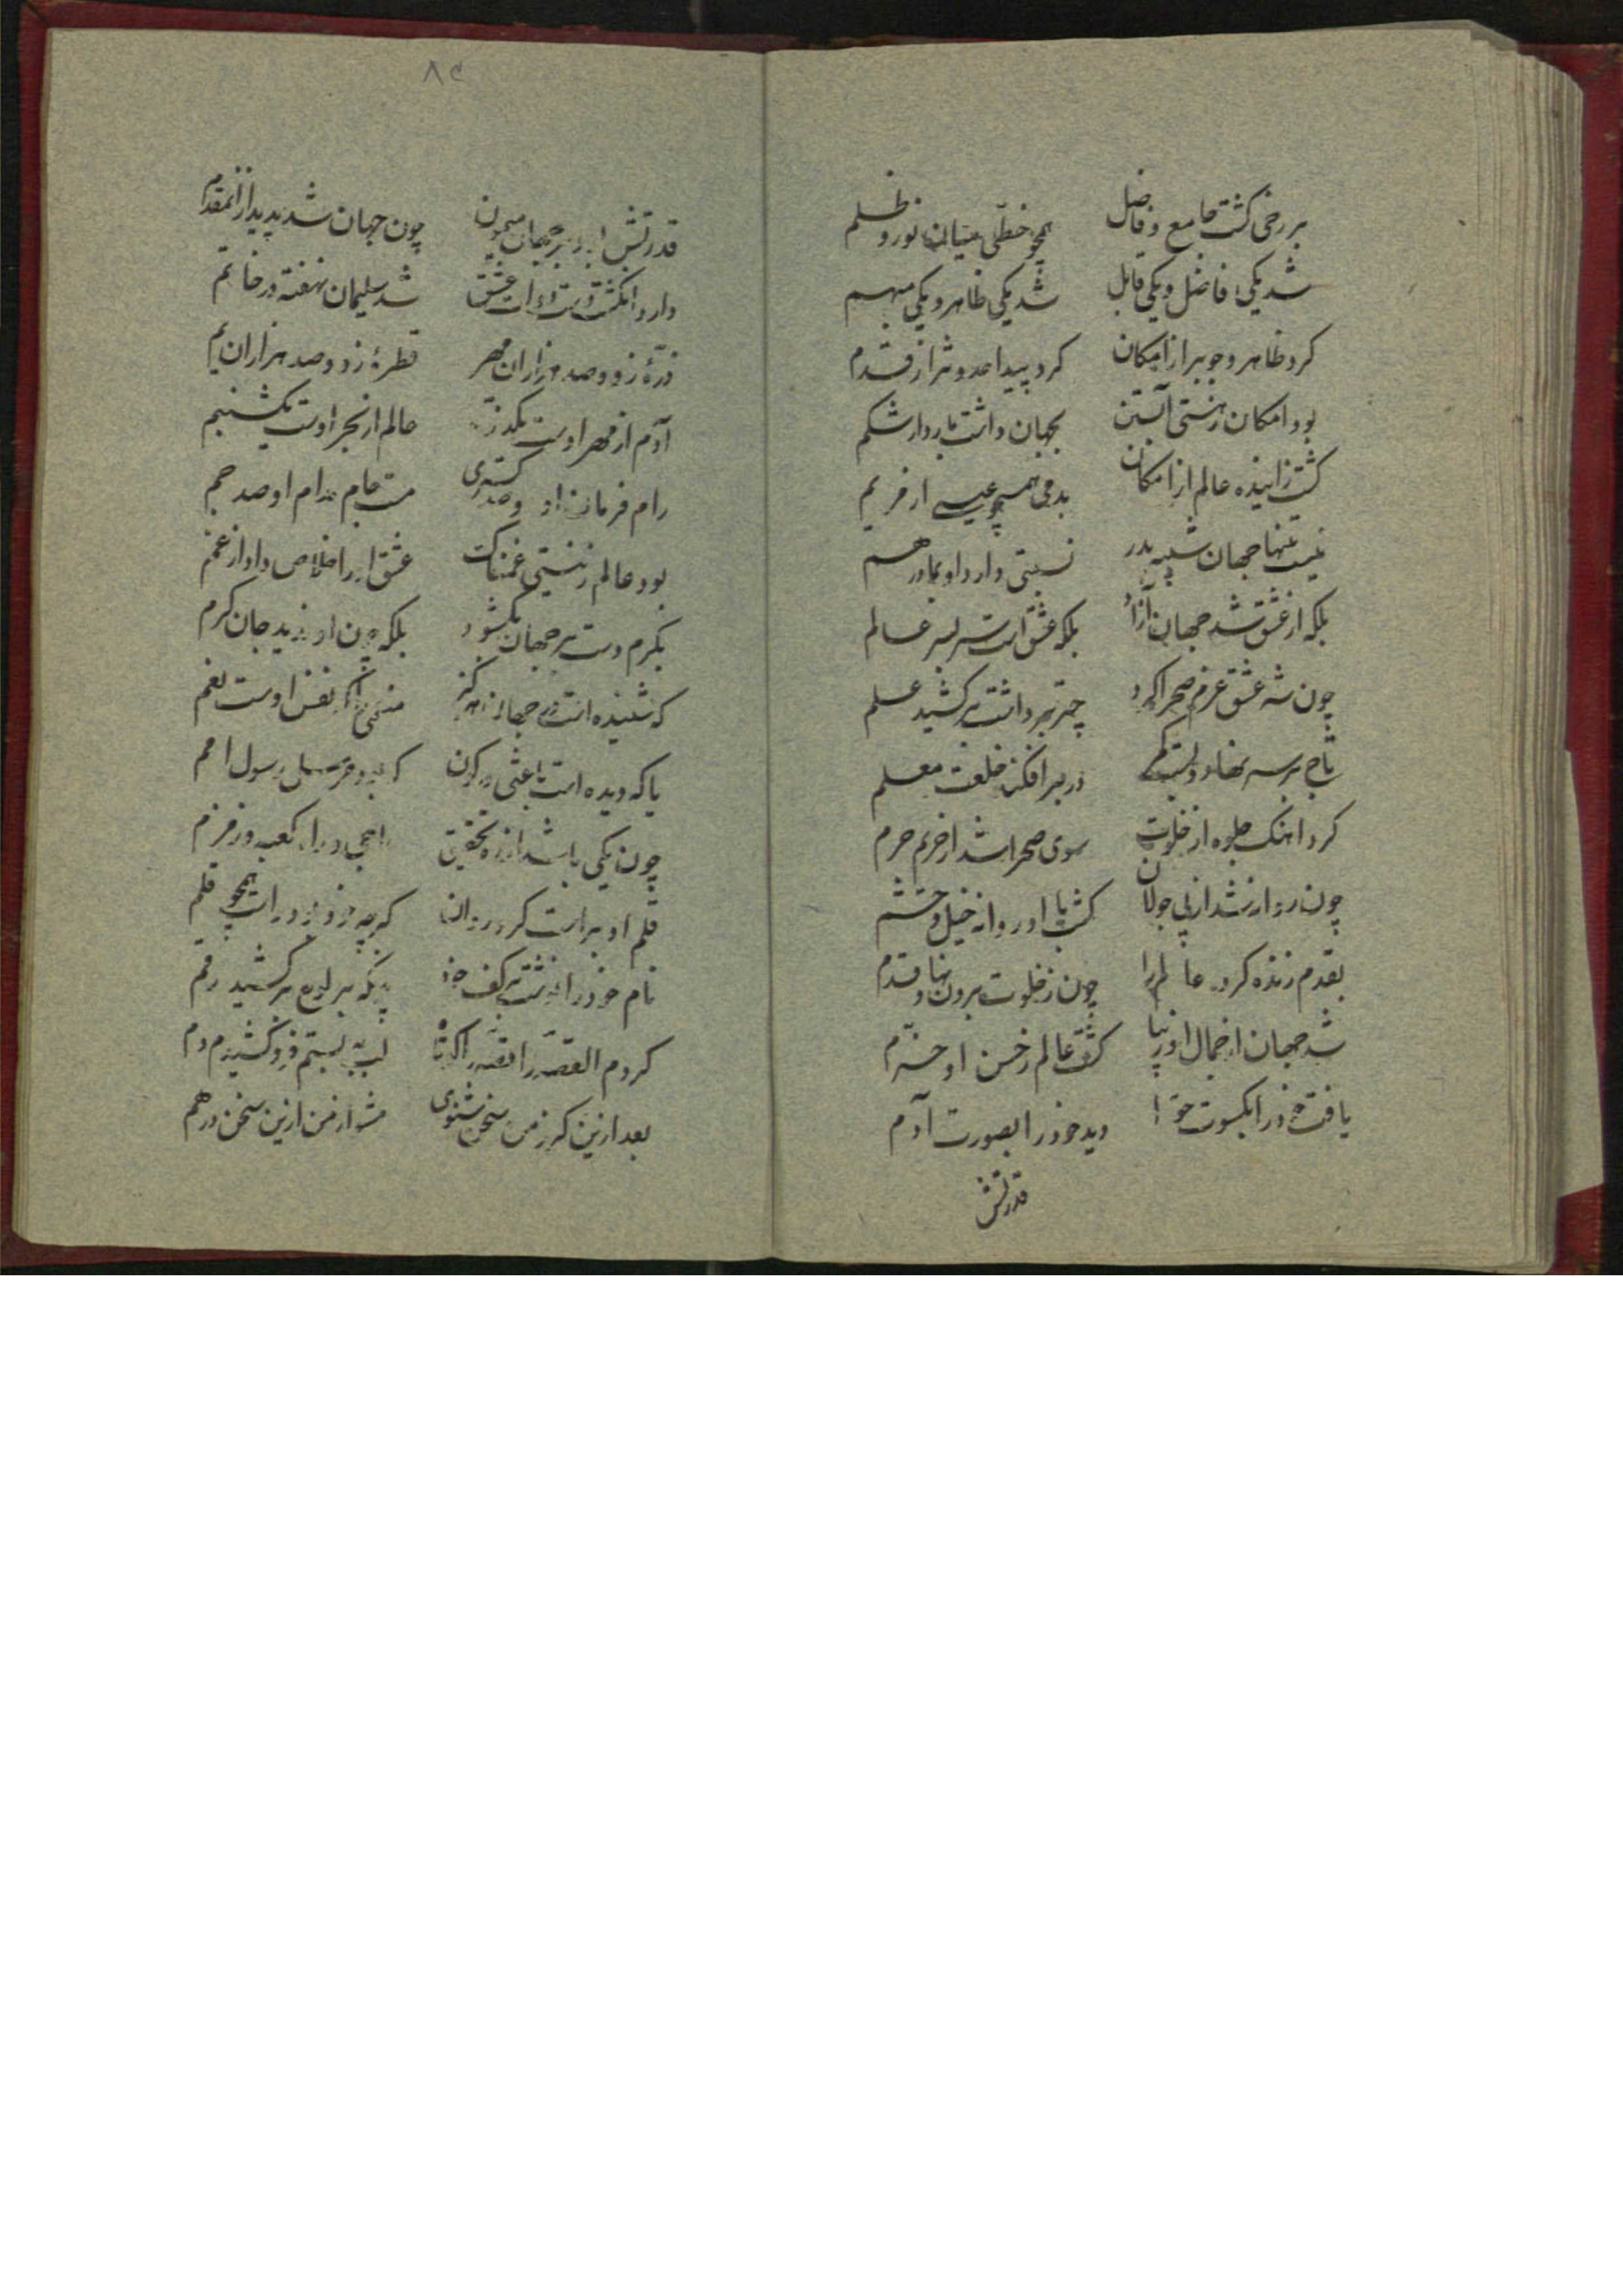 برزخی گشت جامع و فاضل
همچو خطی میان نور و ظلم
شد یکی فاضل و یکی قابل
شد یکی ظاهر و یکی مبهم
کرد ظاهر وجوبرا ز امکان
کرد پیدا حدوثرا ز قدم
بود امکان ز هستی آبستن
بجهان داشت باردار شکم
گشت زاینده عالم از امکان
بدمی همچو عیسی از مریم
نیست تنها جهان شبیه پدر
نسبتی دارد او بمادر هم
بلکه از عشق شد جهان آزاد
بلکه عشق است سر بسر عالم
چون شه عشق عزم صحرا کرد
چتر برداشت بر کشید علم
تاج بر سر نهاد و بست کمر
در بر افکند خلعت معلم
کرد اهنک جلوه از خلوت
سوی صحرا شد از حریم حرم
چون روان شد از پی جولان
گشت با او روانه خیل و حشم
بقدم زنده کرد عالم را
چون ز خلوت برون نهاد قدم
شد جهان از جمال او زیبا
گشت عالم ز حسن او خرّم
یافت خود را بکسوت حوّا
دید خود را بصورت آدم
قدرتش
۸۲
قدرتش بر جهان
چون جهان شد پدید از انمقدم
دارد انگشت دست عشق
شد سلیمان نهفته در خاتم
ذرّهٔ زو و صد هزاران مهر
قطرهٔ زو و صد هزاران یم
آدم از مهر اوست یکذرّه
عالم از بحر اوست یکشبنم
رام فرمان او و صد کسری
مست جام مدام او صد جم
بود عالم ز نیستی غمناک
عشق او را خلاص داد از غم
بکرم دست بر جهان بگشود
بلکه چون او ندید جان کرم
که شنیده است در جهان هرگز
منعمی کز نفس اوست نعم
یا که دیده است باعثی در کون
که بود مرسل و رسول امم
چون یکی باشد از ره تحقیق
حاجی و کعبه و زمزم
قلم او براست کرد روان
گرچه خود بود راست همچو قلم
نام خود را نوشت بر کف خود
چونکه بر لوح بر کشید رقم
کردم القصّه قصّه را کوتاه
لب ببستم فرو کشیدم دم
بعد ازین گر ز من سخن شنوی
مشو از من ازین سخن درهم